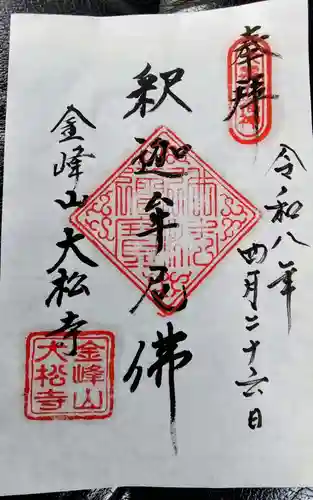 奉拝
令和八年
四月二十六日
釈迦牟尼佛
金峰山大松寺
金峰山
大松寺